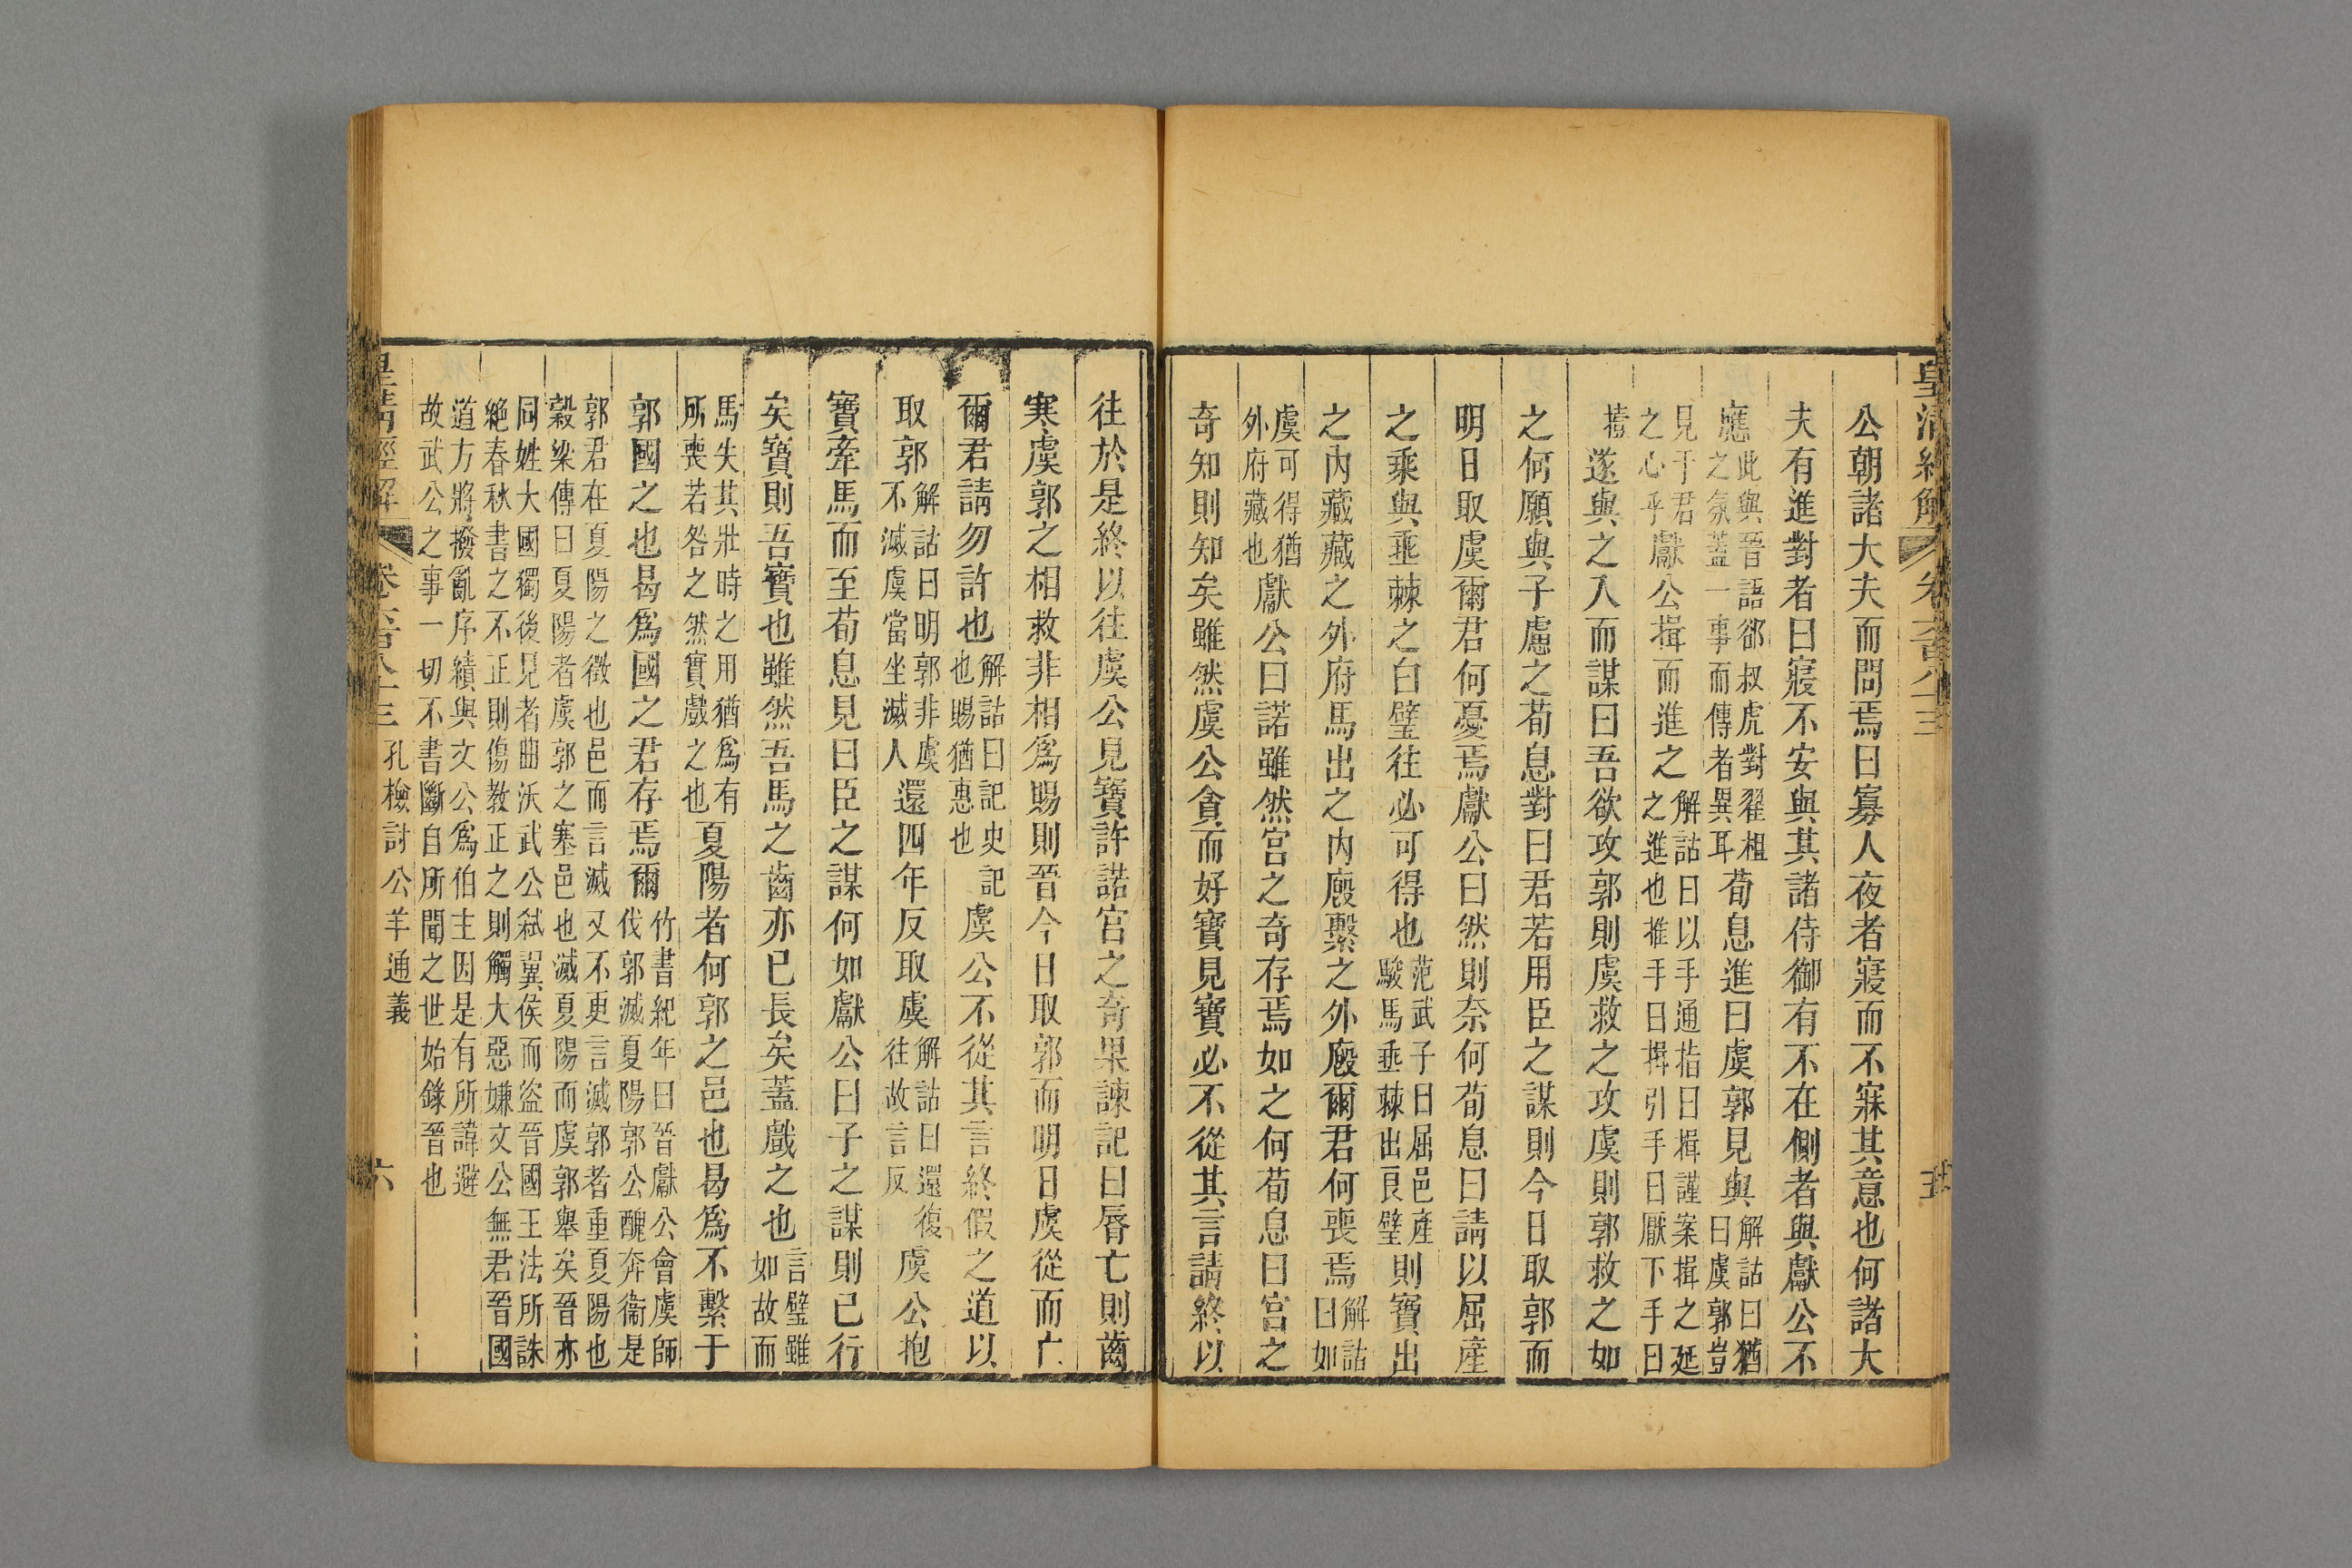 皇清經解 卷六百八十三 五
公朝諸大夫而問焉曰寡人夜者寢而不寐其意也何諸大
夫有進對者曰寢不安與其諸侍御有不在側者與獻公不
應此與晉語郤叔虎對翟柤之氛蓋一事而傳者異耳荀息進曰虞郭見與解詁曰猶曰虞郭豈
見于君之心乎獻公揖而進之解詁曰以手通指曰揖謹案揖之延之進也推手曰揖引手曰厭下手曰
撎遂與之入而謀曰吾欲攻郭則虞救之攻虞則郭救之如
之何願與子慮之荀息對曰君若用臣之謀則今日取郭而
明日取虞爾君何憂焉獻公曰然則奈何荀息曰請以屈產
之乘與垂棘之白璧往必可得也范武子曰屈邑產駿馬垂棘出良璧則寶出
之內藏藏之外府馬出之內廄繫之外廄爾君何喪焉解詁曰如
虞可得猶外府藏也獻公曰諾雖然宮之奇存焉如之何荀息曰宮之
奇知則知矣雖然虞公貪而好寶見寶必不從其言請終以
往於是終以往虞公見寶許諾宮之奇果諫記曰脣亡則齒
寒虞郭之相救非相爲賜則晉今日取郭而明日虞從而亡
爾君請勿許也解詁曰記史記也賜猶惠也虞公不從其言終假之道以
取郭解詁曰明郭非虞不滅虞當坐滅人還四年反取虞解詁曰還復往故言反虞公抱
寶牽馬而至荀息見曰臣之謀何如獻公曰子之謀則已行
矣寶則吾寶也雖然吾馬之齒亦已長矣蓋戲之也言璧雖如故而
馬失其壯時之用猶爲有所喪若咎之然實戲之也夏陽者何郭之邑也曷爲不繫于
郭國之也曷爲國之君存焉爾竹書紀年曰晉獻公會虞師伐郭滅夏陽郭公醜奔衞是
郭君在夏陽之徵也邑而言滅又不更言滅郭者重夏陽也
穀梁傳曰夏陽者虞郭之塞邑也滅夏陽而虞郭舉矣晉亦
同姓大國獨後見者曲沃武公弒翼侯而盜晉國王法所誅
絕春秋書之不正則傷教正之則觸大惡嫌文公無君晉國
道方將撥亂序績與文公爲伯主因是有所諱避
故武公之事一切不書斷自所聞之世始錄晉也
皇清經解 卷六百八十三 孔檢討公羊通義 六